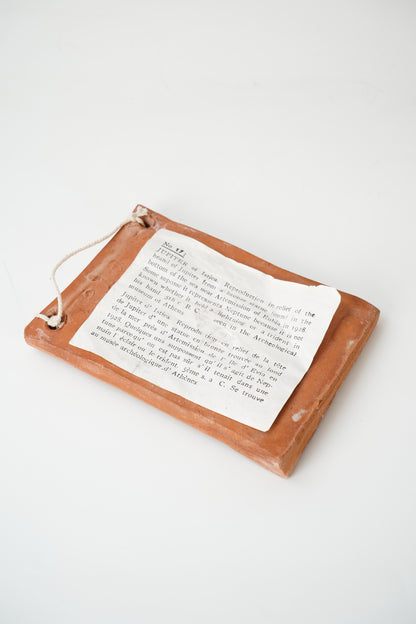 No 17.
JUPITER of Istiea. Reproduction in relief of the
head of Jupiter from a bronze statue found in the
bottom of the sea near Artemission of Eubia in 1928.
Some suppose it represents Neptune because it is not
known whether it holds a ligthning or a trident in
his hand 5th c. B. C. seen in the Archeological
museum of Athens.
Jupiter d' Istiea. Reproduction en relief de la tête
de Jupiter d' une statue en bronze trouvée au fond
de la mer près d' Artemission de l' île d' Evia en
1928. Quelques uns supposent qu' il s'agit de Nep-
tune parsqu' on est pas sûr s'il tenait dans une
main l' éclair ou le trident. 5ème s. a C. Se trouve
au musée archéologique d' Athènes